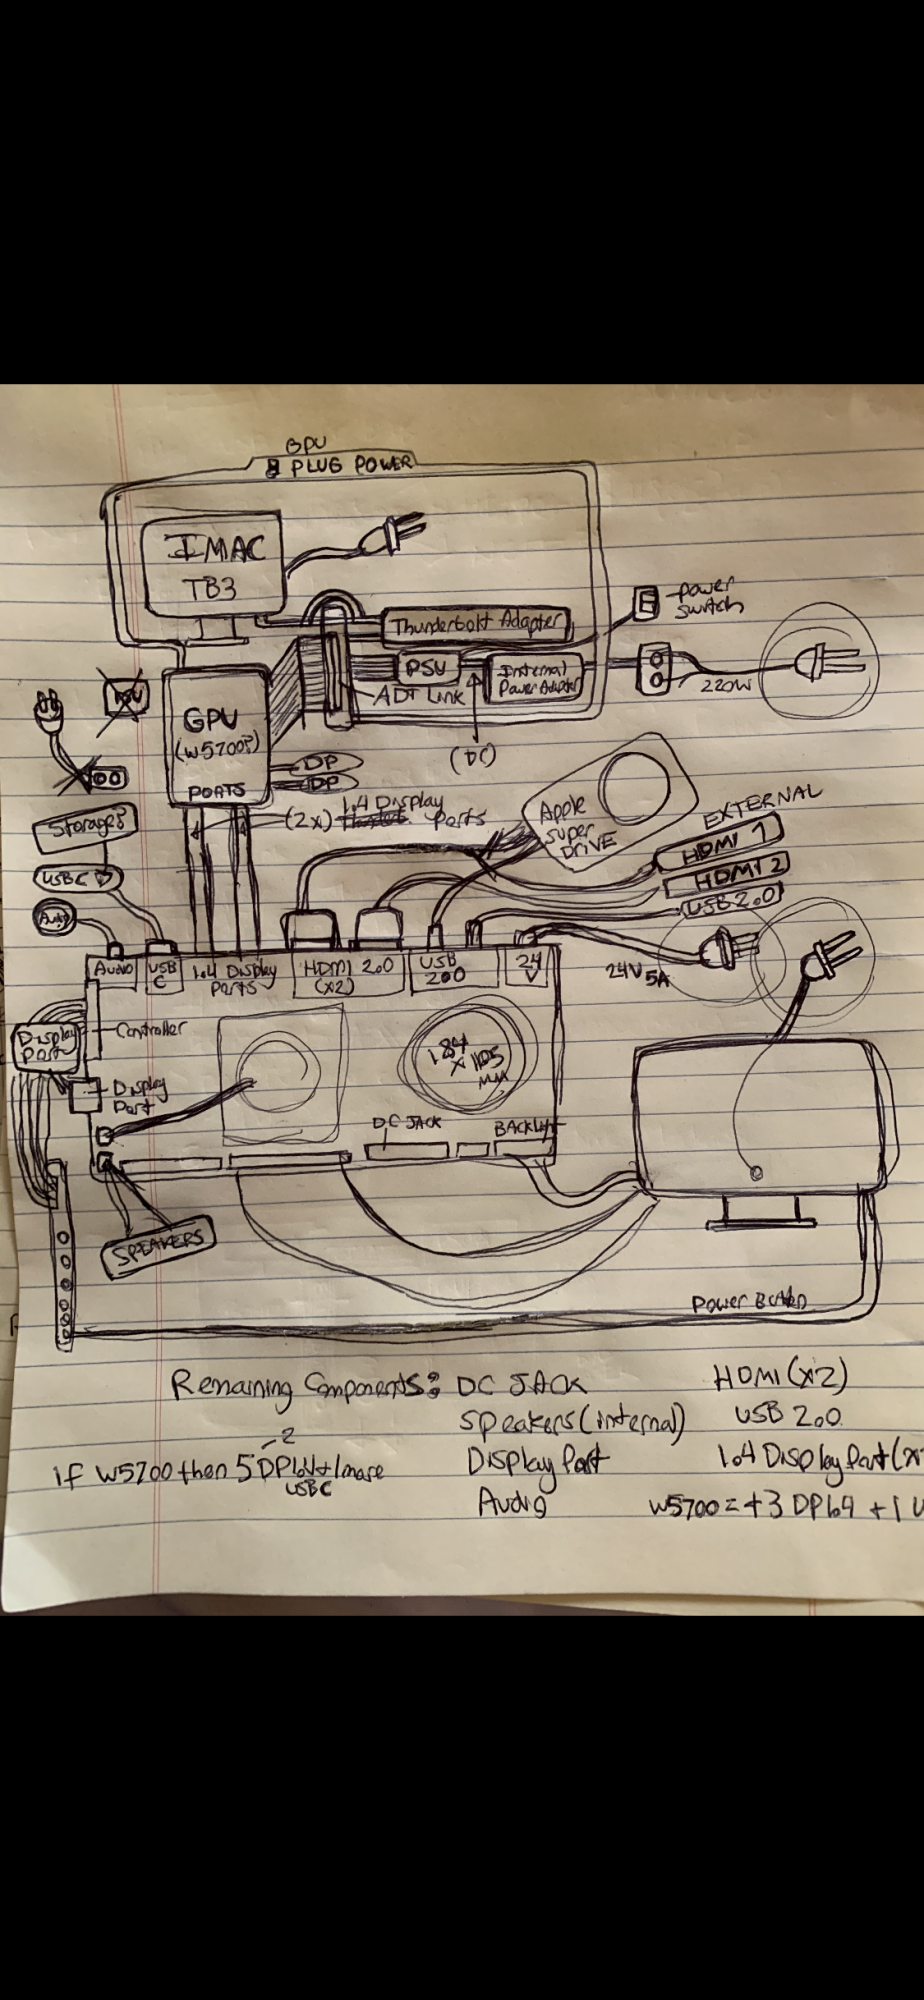 GPU
8 PLUG POWER
IMAC
TB3
Thunderbolt Adapter
power
switch
PSU
Internal
Power Adapter
ADT Link
220W
(DC)
PSU
GPU
(W5700?)
PORTS
DP
DP
1.4 Display
(2x) Ports
Storage?
USBC
Audio
Apple
Super
DRIVE
EXTERNAL
HDMI 1
HDMI 2
USB 2.0
24V 5A
AUDIO
USB
C
1.4 Display
Ports
HDMI 2.0
(x2)
USB
2.0
24
V
Display
Port
Controller
Display
Port
184
x 105
MM
DC JACK
BACKLight
SPEAKERS
Power Button
Remaining Components: DC JACK HDMI (x2)
Speakers (internal) USB 2.0
-2
if W5700 then 5 DP 1.4 + 1 more
USBC
Display Port 1.4 Display Port (x
Audio W5700 = +3 DP 1.4 + 1 U